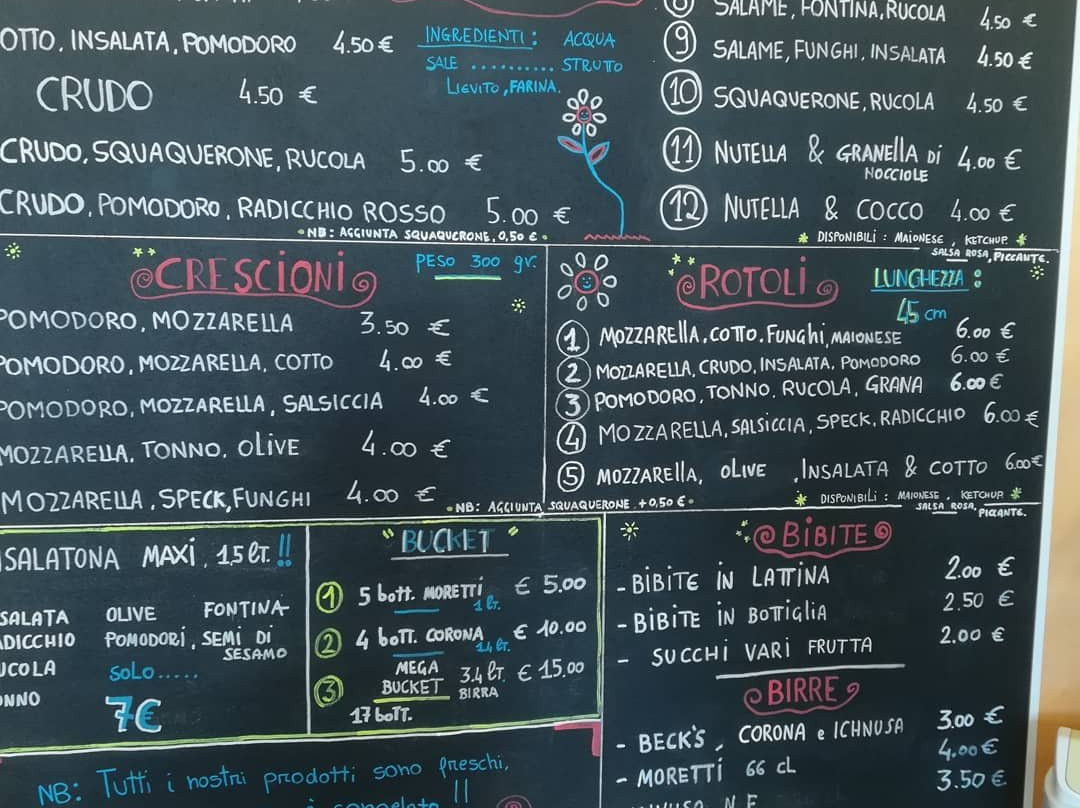 OTTO, INSALATA, POMODORO 4.50 €
CRUDO 4.50 €
CRUDO, SQUAQUERONE, RUCOLA 5.00 €
CRUDO, POMODORO, RADICCHIO ROSSO 5.00 €
• NB: AGGIUNTA SQUAQUERONE, 0,50 € •
INGREDIENTI: ACQUA
SALE .......... STRUTTO
LIEVITO, FARINA.
8 SALAME, FONTINA, RUCOLA 4.50 €
9 SALAME, FUNGHI, INSALATA 4.50 €
10 SQUAQUERONE, RUCOLA 4.50 €
11 NUTELLA & GRANELLA DI NOCCIOLE 4.00 €
12 NUTELLA & COCCO 4.00 €
* DISPONIBILI: MAIONESE, KETCHUP *
SALSA ROSA, PICCANTE.
CRESCIONI
PESO 300 gr.
POMODORO, MOZZARELLA 3.50 €
POMODORO, MOZZARELLA, COTTO 4.00 €
POMODORO, MOZZARELLA, SALSICCIA 4.00 €
MOZZARELLA, TONNO, OLIVE 4.00 €
MOZZARELLA, SPECK, FUNGHI 4.00 €
• NB: AGGIUNTA SQUAQUERONE +0,50 € •
ROTOLI
LUNGHEZZA:
45 cm
1 MOZZARELLA, COTTO, FUNGHI, MAIONESE 6.00 €
2 MOZZARELLA, CRUDO, INSALATA, POMODORO 6.00 €
3 POMODORO, TONNO, RUCOLA, GRANA 6.00 €
4 MOZZARELLA, SALSICCIA, SPECK, RADICCHIO 6.00 €
5 MOZZARELLA, OLIVE, INSALATA & COTTO 6.00 €
* DISPONIBILI: MAIONESE, KETCHUP *
SALSA ROSA, PICCANTE.
SALATONA MAXI, 1,5 lT. !!
SALATA OLIVE FONTINA
ADICCHIO POMODORI, SEMI DI SESAMO
UCOLA SOLO.....
ONNO 7€
"BUCKET"
1 5 bott. MORETTI € 5.00
1 lT.
2 4 bott. CORONA € 10.00
1.4 lT.
3 MEGA BUCKET 3.4 lT. BIRRA € 15.00
17 bott.
BIBITE
- BIBITE IN LATTINA 2.00 €
- BIBITE IN BOTTIGLIA 2.50 €
- SUCCHI VARI FRUTTA 2.00 €
BIRRE
- BECK'S, CORONA e ICHNUSA 3.00 €
- MORETTI 66 cL 4.00 €
3.50 €
NB: Tutti i nostri prodotti sono freschi,